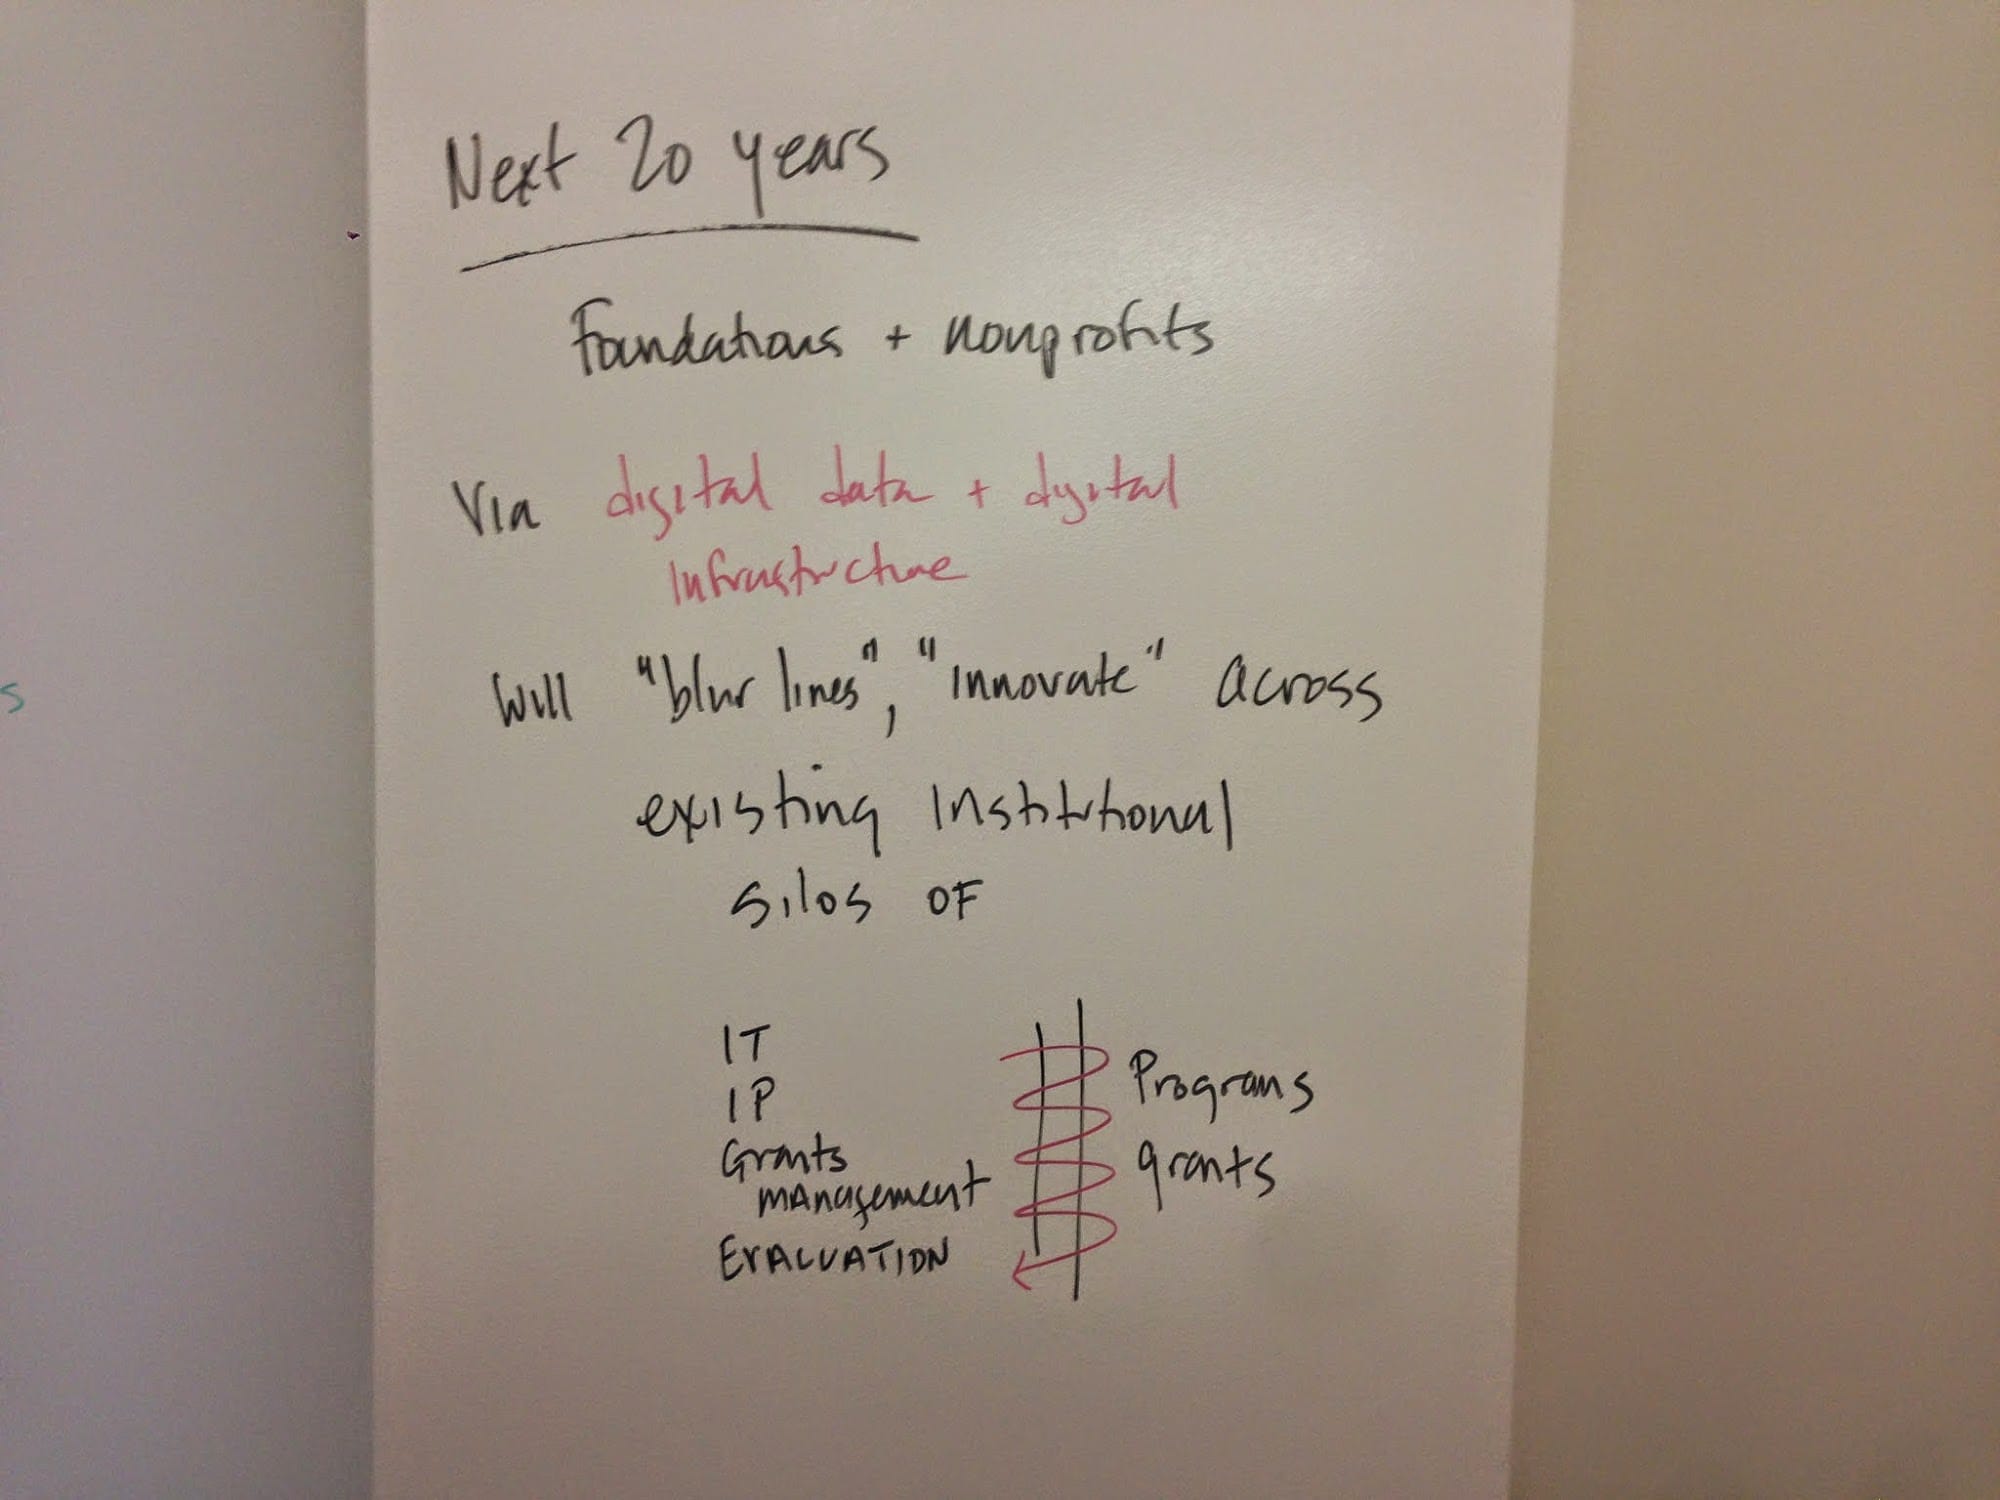 Next 20 years
Foundations + nonprofits
Via digital data + digital
infrastructure
Will "blur lines", "innovate" across
existing institutional
silos OF
IT
IP
Grants
management
EVALUATION
Programs
grants
s